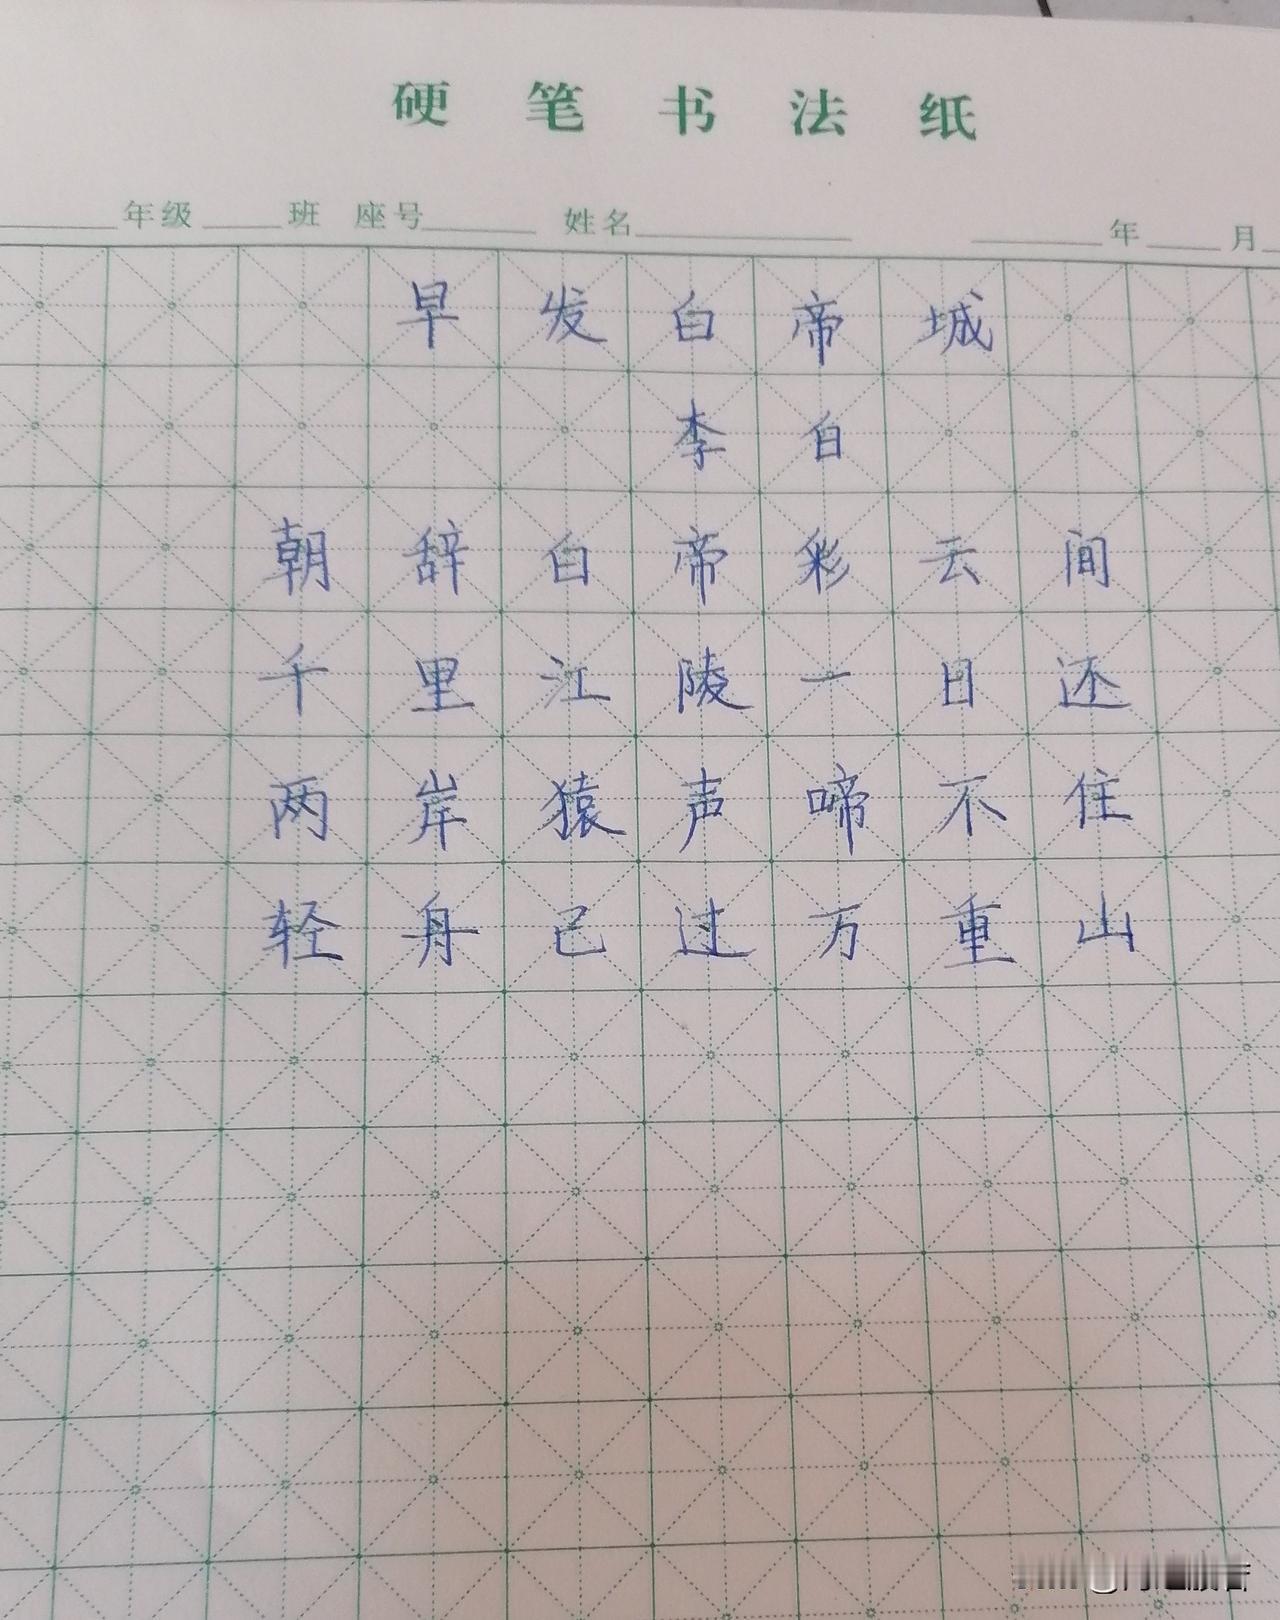 硬笔书法纸
年级 班 座号 姓名 年 月
早发白帝城
李白
朝辞白帝彩云间
千里江陵一日还
两岸猿声啼不住
轻舟已过万重山